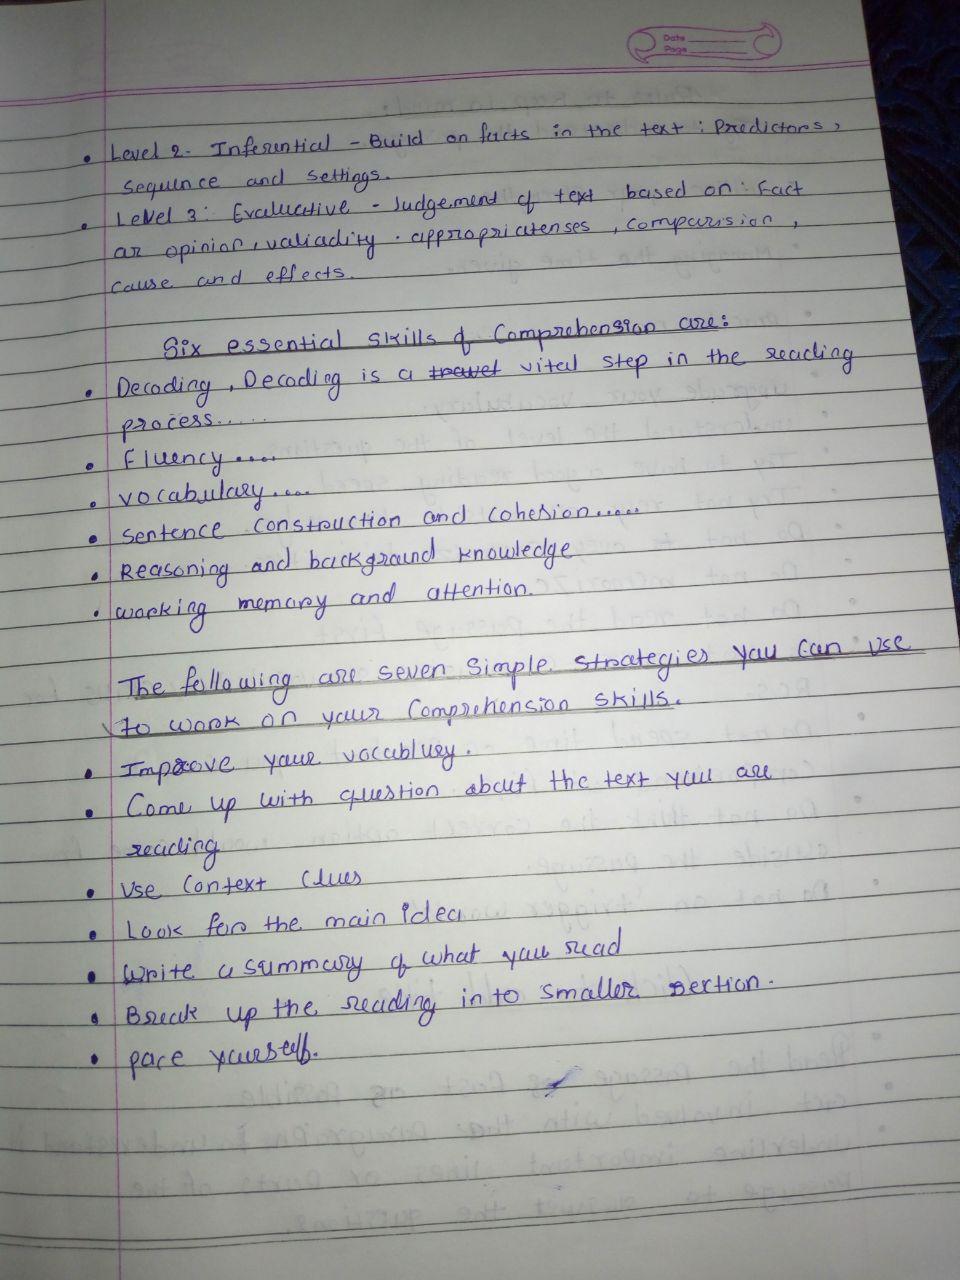 Date
Page
• Level 2- Inferential - Build on facts in the text : Predictors,
sequence and settings.
• Level 3: Evaluative - Judgement of text based on: Fact
or opinion, valiadity . appropriatenses, comparision,
cause and effects.
Six essential skills of Comprehension are:
• Decoding, Decoding is a travel vital step in the reading
process......
• Fluency ....
• vocabulary....
• sentence construction and cohesion.....
• Reasoning and background knowledge
• working memory and attention.
The following are seven simple strategies you can use
to work on your Comprehension skills.
• Improve your vocabluey.
• Come up with question about the text you are
reading
• Use Context Clues
• Look for the main idea
• Write a summary of what you read
• Break up the reading in to smaller sertion.
• pace yourself.